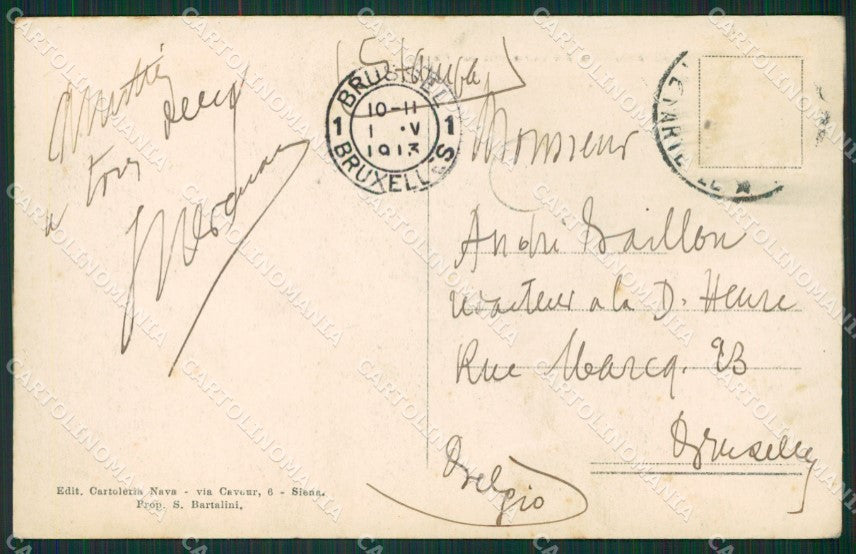 (Stampe)
BRUSSEL
10-11
1 V
1913
BRUXELLES
1 1
a tous
Monsieur
André Baillon
à la D. Heure
Rue Marcq. 23
Bruxelles
Belgio
Edit. Cartoleria Nava - via Cavour, 6 - Siena.
Prop. S. Bartalini.
CARTOLINOMANIA